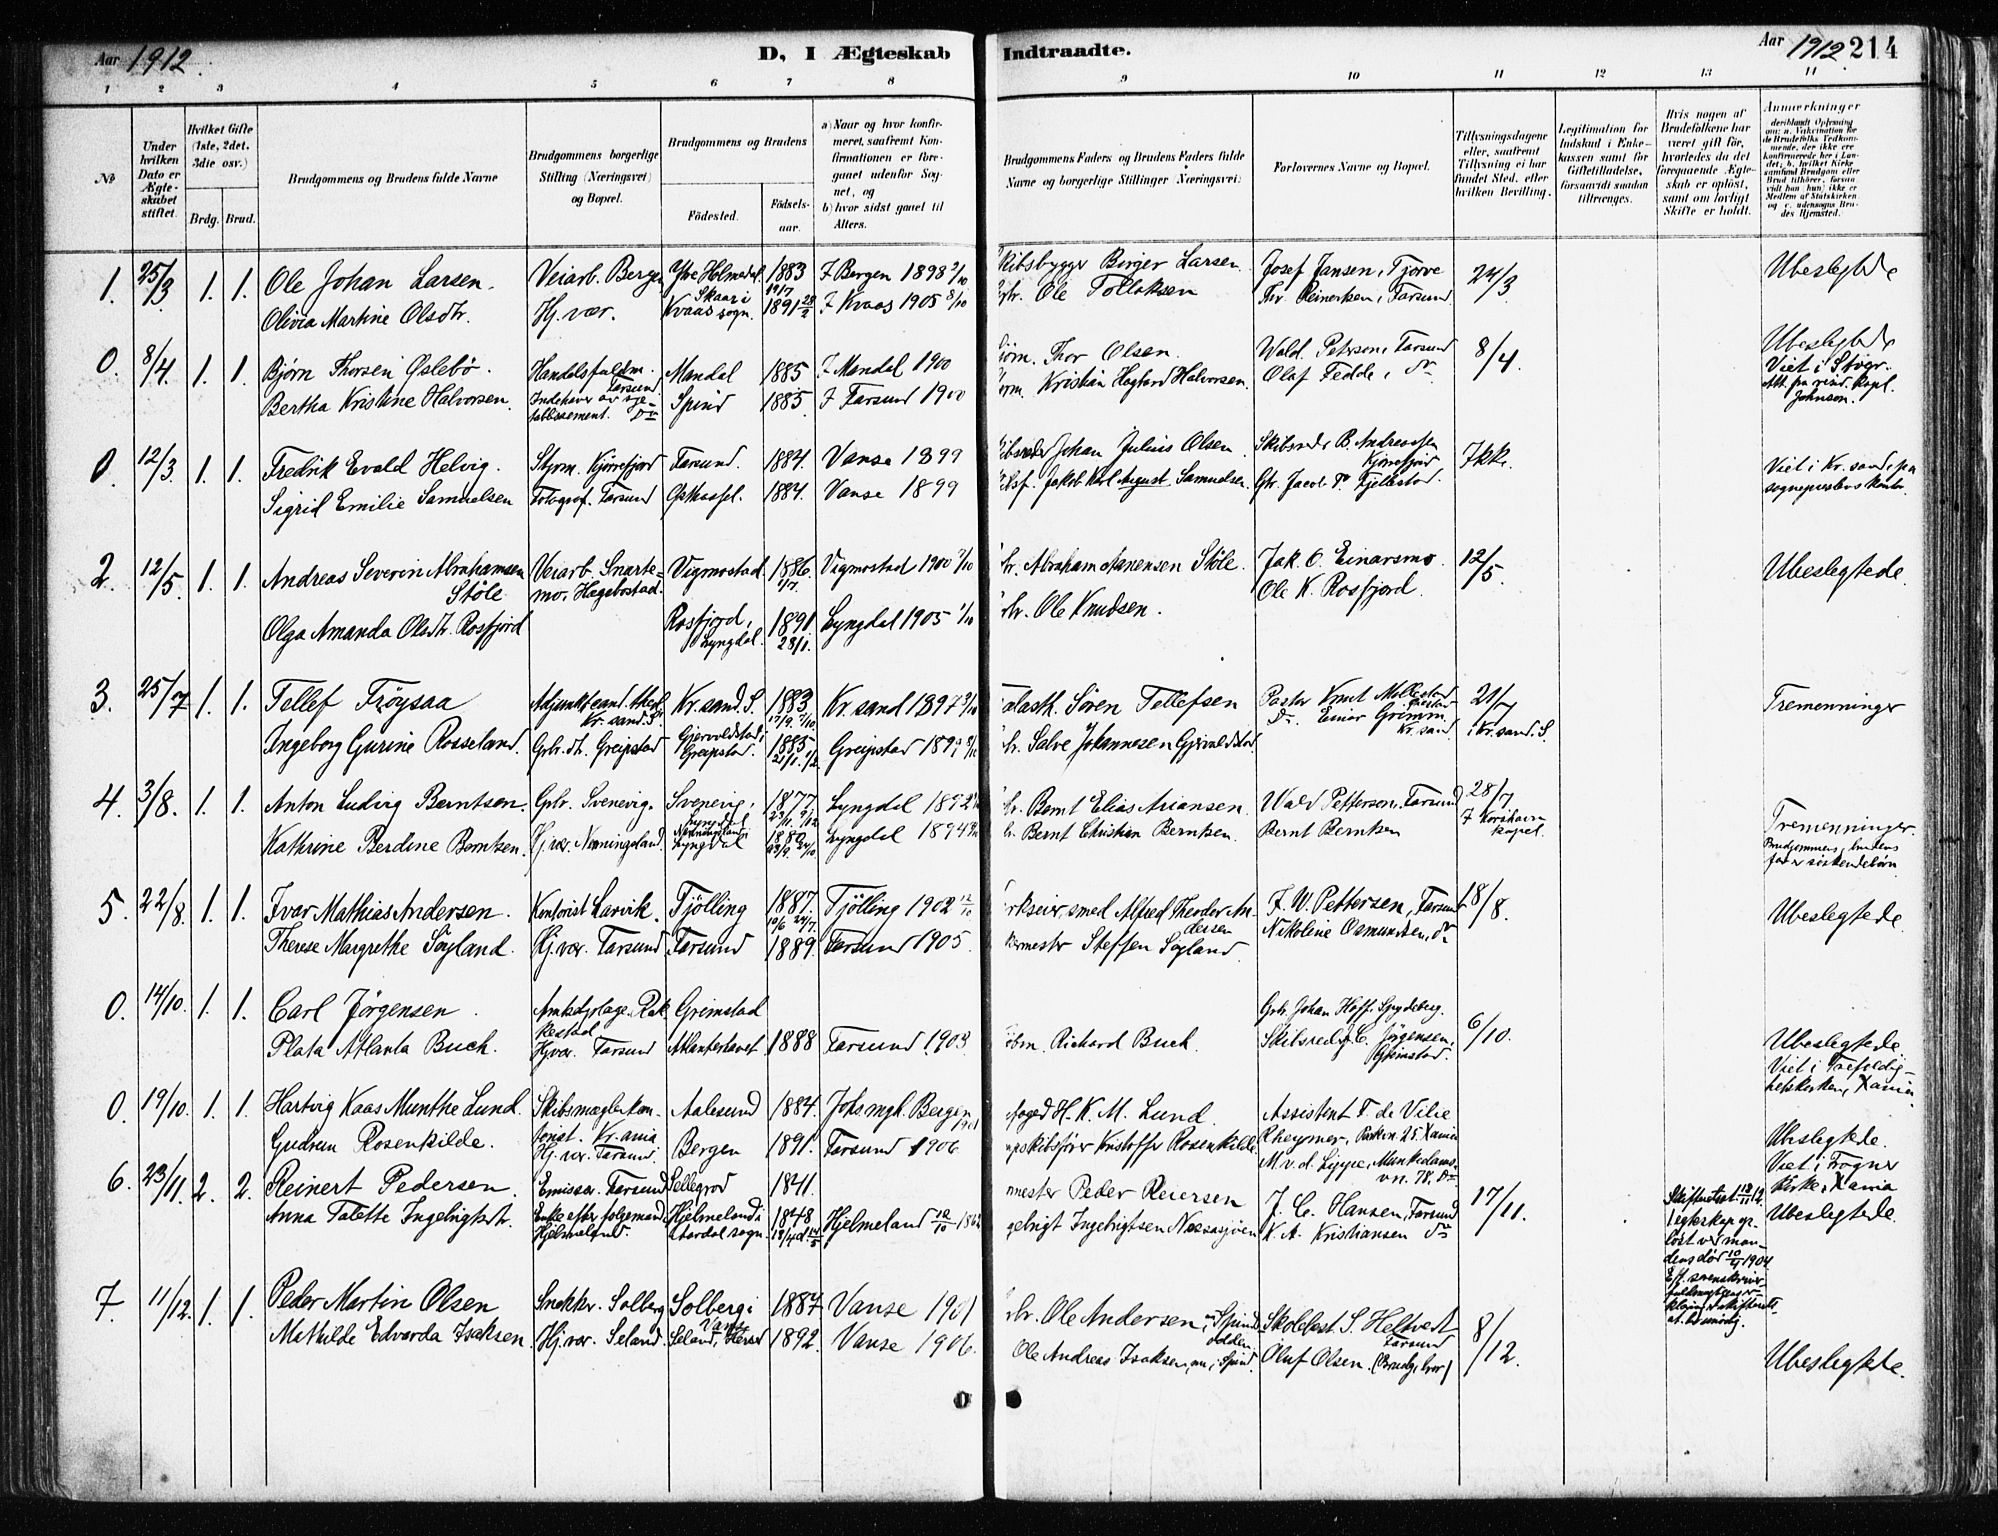 Aar 1912. D, I Ægteskab Indtraadte. Aar 1912 214
1 2 3 4 5 6 7 8 9 10 11 12 13 14
№
Under hvilken Dato er Ægteskabet stiftet.
Hvilket Gifte (1ste, 2det, 3die osv.)
Brdg. Brud.
Brudgommens og Brudens fulde Navne
Brudgommens borgerlige Stilling (Næringsvei) og Bopæl.
Brudgommens og Brudens
Fødested. Fødselsaar.
a) Naar og hvor konfirmeret, saafremt Konfirmationen er foregaaet udenfor Sognet, og
b) hvor sidst gaaet til Alters.
Brudgommens Faders og Brudens Faders fulde Navne og borgerlige Stillinger (Næringsvei)
Forlovernes Navne og Bopæl.
Tillysningsdagene eller, saafremt Tillysning ei har fundet Sted, efter hvilken Bevilling.
Legitimation for Indskud i Enkekassen samt for Giftetilladelse, forsaavidt saadan tiltrænges.
Hvis nogen af Brudefolkene har været gift før, hvorledes da det foregaaende Ægteskab er opløst, samt om lovligt Skifte er holdt.
Anmerkninger
1. 25/3 1. 1. Ole Johan Larsen. Veiarb. Bergen Ytre Holmedal 1883 19/7 F Bergen 1898 2/10 Skibsbygger Birger Larsen Josef Jansen, Tjørve 24/3 Ubeslegtede
Olivia Martine Olsdtr. Hj. vær. Skaar i Kvaas sogn. 1891 28/2 F Kvaas 1905 8/10 Ole Tollaksen Thr. Reinertsen, Farsund
0. 8/4. 1. 1. Bjørn Thorsen Øslebö. Handelsfuldm. Farsund Mandal 1885 F Mandal 1900 Thor Olsen. Wald. Peterson, Farsund 8/4 Ubeslegtede
Bertha Kristine Halvorsen. Indehaver av Spind 1885. F Farsund 1900 Kristian Hagbard Halvorsen. Olaf Fedde, do
Johnson.
0. 12/3. 1. 1. Fredrik Evald Helvig. Styrm. Kjørrefjord Farsund. 1884. Vanse 1899 Johan Julius Olsen Skibsreder B. Andreassen Kjørrefjord Ikke. Viet i Kr.sand, paa
Sigrid Emilie Samuelsen Fotograf. Farsund 1884. Vanse 1899 Jakob Karl August Samuelsen. Gbr. Jacob P. Fjellestad. sogneprestens kontor.
2. 12/5. 1. 1. Andreas Severin Abrahamsen Støle Veiarb. Snartemo, Hægebostad. Vigmostad 1886 Vigmostad 1900 7/10 Abraham Aanensen Støle. Jak. O. Einarsmo 12/5. Ubeslegtede.
Olga Amanda Olsdtr. Rosfjord Rosfjord, Lyngdal. 1891 28/1. Lyngdal 1905 1/10 Ole Knudsen. Ole K. Rosfjord
3. 25/7 1. 1. Tellef Frøysaa Adjunkt, cand. theol. Kr.sand. S. Kr.sand. S. 1883 Kr.sand 1897 Søren Tellefsen Pastor Knut Mollestad 21/7 i Kr.sand. S. Tremenninger
Ingeborg Gurine Rosseland. Gbr. dtr. Greipstad Gjervoldstad i Greipstad. 1885 Greipstad 1899 Salve Johannesen Gjervoldstad Einar Grimm. Kr.sand
4. 3/8. 1. 1. Anton Ludvig Berntsen. Gbr. Svenevig. Svenevig, Lyngdal 1877 Lyngdal 1892 Bernt Elias Ariansen Wald Petterson, Farsund 28/7 F Korshavn kapel. Tremenninger.
Kathrine Berdine Berntsen. Hj. vær. Nenningsland. Nenningsland i Lyngdal 1880 Lyngdal 1894 Bernt Christian Berntsen. Bernt Berntsen Brudgommens, brudens far er søskendebørn
5. 22/8. 1. 1. Ivar Mathias Andersen. Kontorist Larvik. Tjølling 1887. 10/6 24/7. Tjølling 1902 12/10 smed Alfred Theodor Andersen F. W. Pettersen, Farsund 18/8. Ubeslegtede.
Therese Margrethe Søyland. Hj. vær. Farsund Farsund 1889. Farsund 1905. Steffen Søyland. Nikoline Osmundsen, do
0. 14/10. 1. 1. Carl Jørgensen. Rakkestad Grimstad Gbr. Johan Hoff, Spydeberg. 6/10. Ubeslegtede.
Plata Atlanta Buch. Hj vær. Farsund Atlanterhavet 1888 Farsund 1903 Richard Buch. Skibsred. C. Jørgensen, Grimstad. Viet i Trefoldighetskirken, Xania.
0. 19/10. 1. 1. Hartvig Kaas Munthe Lund. Skibsmæglerkontorist. Kr.ania Aalesund 1884. Johs mgh. Bergen 1901 H. K. M. Lund. Assistent F. de Vibe Ubeslegtede.
Gudrun Rosenkilde. Hj. vær. Farsund. Bergen 1891. Farsund 1906 Kristoffer Rosenkilde. Rheymer, Parkvn. 25. Xania Viet i Frogner Kirke, Xania
M. v. d. Lippe, Munkedamsvn. 78. do
6. 23/11. 2. 2. Reinert Pedersen. Emissær. Farsund 1841. Peder Reiersen J. C. Hansen, Farsund 17/11. Ubeslegtede.
Anna Talette Ingebrigtsdtr. Enke efter Hjelmeland i Aardal sogn. 1848 Hjelmeland Ingebrigt Ingebrigtsen K. A. Kristiansen do
Skifteattest Egteskap opløst ved mandens død 10/4 1904
7. 11/12. 1. 1. Peder Martin Olsen Snekker. Solberg Solberg i Vanse 1887 Vanse 1901 Ole Andersen, Spindodden, Skolebest. S. Heltvedt Farsund 8/12.
Mathilde Edvarda Isaksen. Hj. vær. Seland Seland, Herad 1892 Vanse 1906. Ole Andreas Isaksen, nu i Spind. Oluf Olsen. (Brudg. bror) Ubeslegtede.